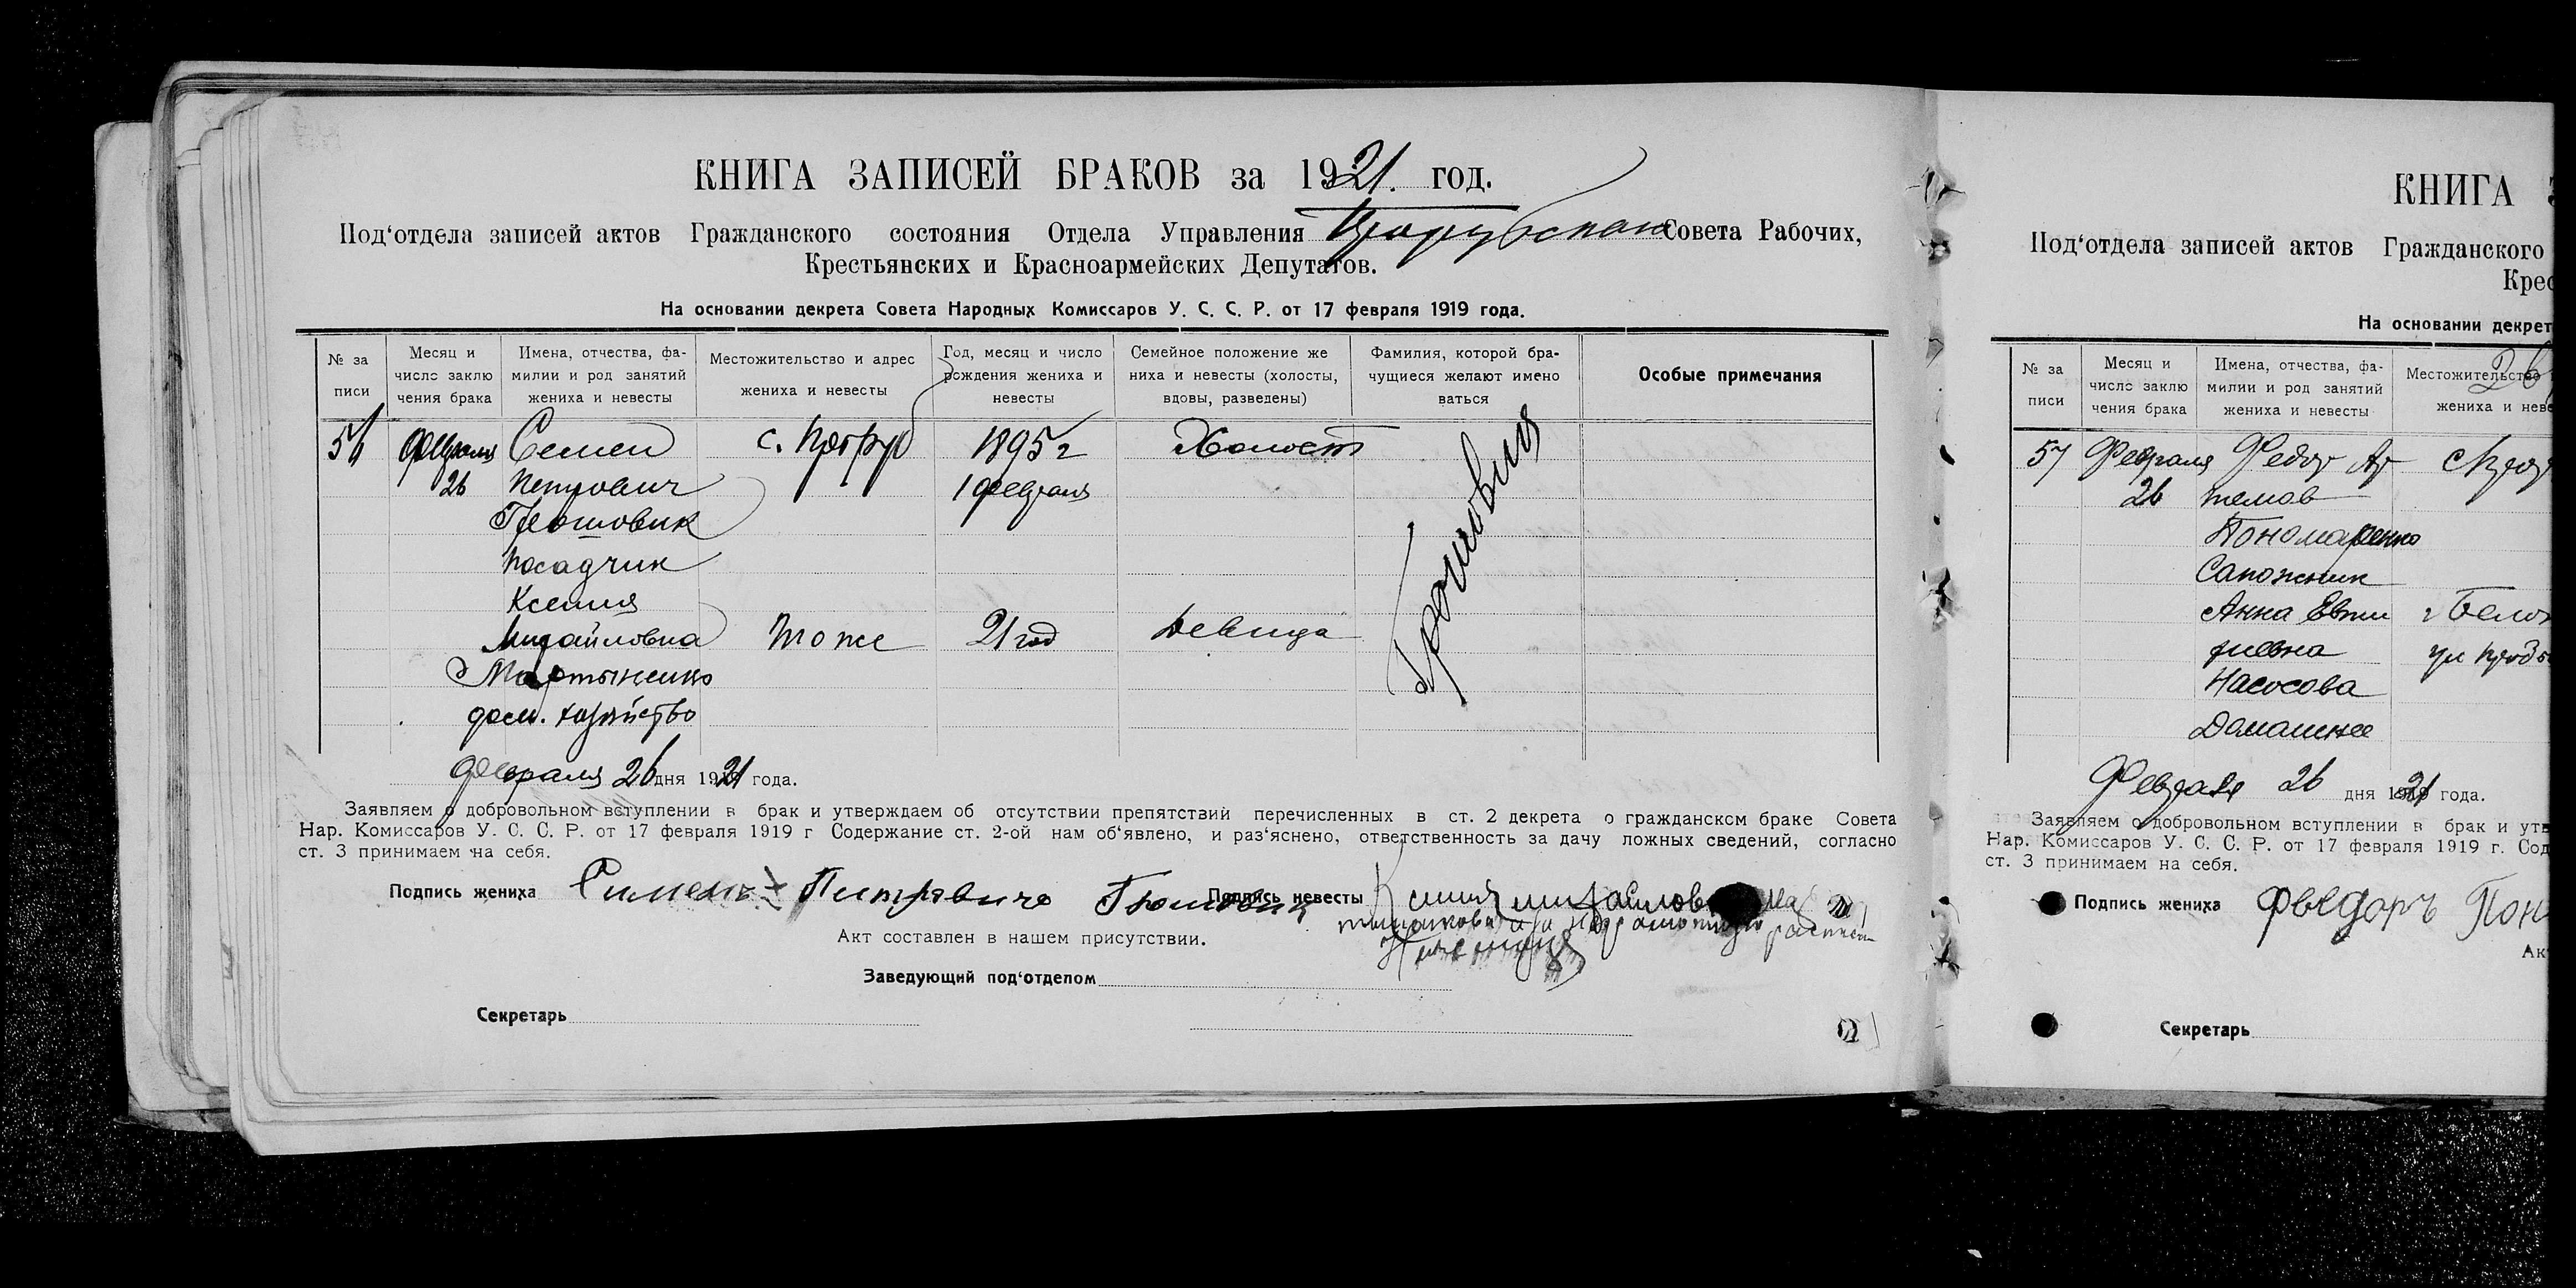 КНИГА ЗАПИСЕЙ БРАКОВ за 1921. год.
Под‘отдела записей актов Гражданского состояния Отдела Управления Совета Рабочих,
Крестьянских и Красноармейских Депутатов.
На основании декрета Совета Народных Комиссаров У. С. С. Р. от 17 февраля 1919 года.
№ за писи
Месяц и число заклю чения брака
Имена, отчества, фа- милии и род занятий жениха и невесты
Местожительство и адрес жениха и невесты
Год, месяц и число рождения жениха и невесты
Семейное положение же ниха и невесты (холосты, вдовы, разведены)
Фамилия, которой бра- чущиеся желают имено ваться
Особые примечания
56 Февраля Семен с. 1895 г Холост
26 Петрович 1 февраля
Грошовик
посадчик
Ксения
Михайловна То же 21 год Девица
Мартыненко
дом. хозяйство
Февраля 26 дня 1921 года.
Заявляем о добровольном вступлении в брак и утверждаем об отсутствии препятствий перечисленных в ст. 2 декрета о гражданском браке Совета
Нар. Комиссаров У. С. С. Р. от 17 февраля 1919 г Содержание ст. 2-ой нам об‘явлено, и раз‘яснено, ответственность за дачу ложных сведений, согласно
ст. 3 принимаем на себя.
Подпись жениха Подпись невесты
Акт составлен в нашем присутствии.
Заведующий под‘отделом
Секретарь
КНИГА
Под‘отдела записей актов Гражданского
Крес
На основании декрет
№ за писи
Месяц и число заклю чения брака
Имена, отчества, фа- милии и род занятий жениха и невесты
Местожительство жениха и неве
57 Февраля Федор Ар
26 темов
Пономаренко
Сапожник
Анна Евти г Бело
фиевна
Насосова
Домашнее
Февраля 26 дня 1921 года.
Заявляем о добровольном вступлении в брак и утв
Нар. Комиссаров У. С. С. Р. от 17 февраля 1919 г. Сод
ст. 3 принимаем на себя.
Подпись жениха Фыедоръ Пон
Ак
Секретарь